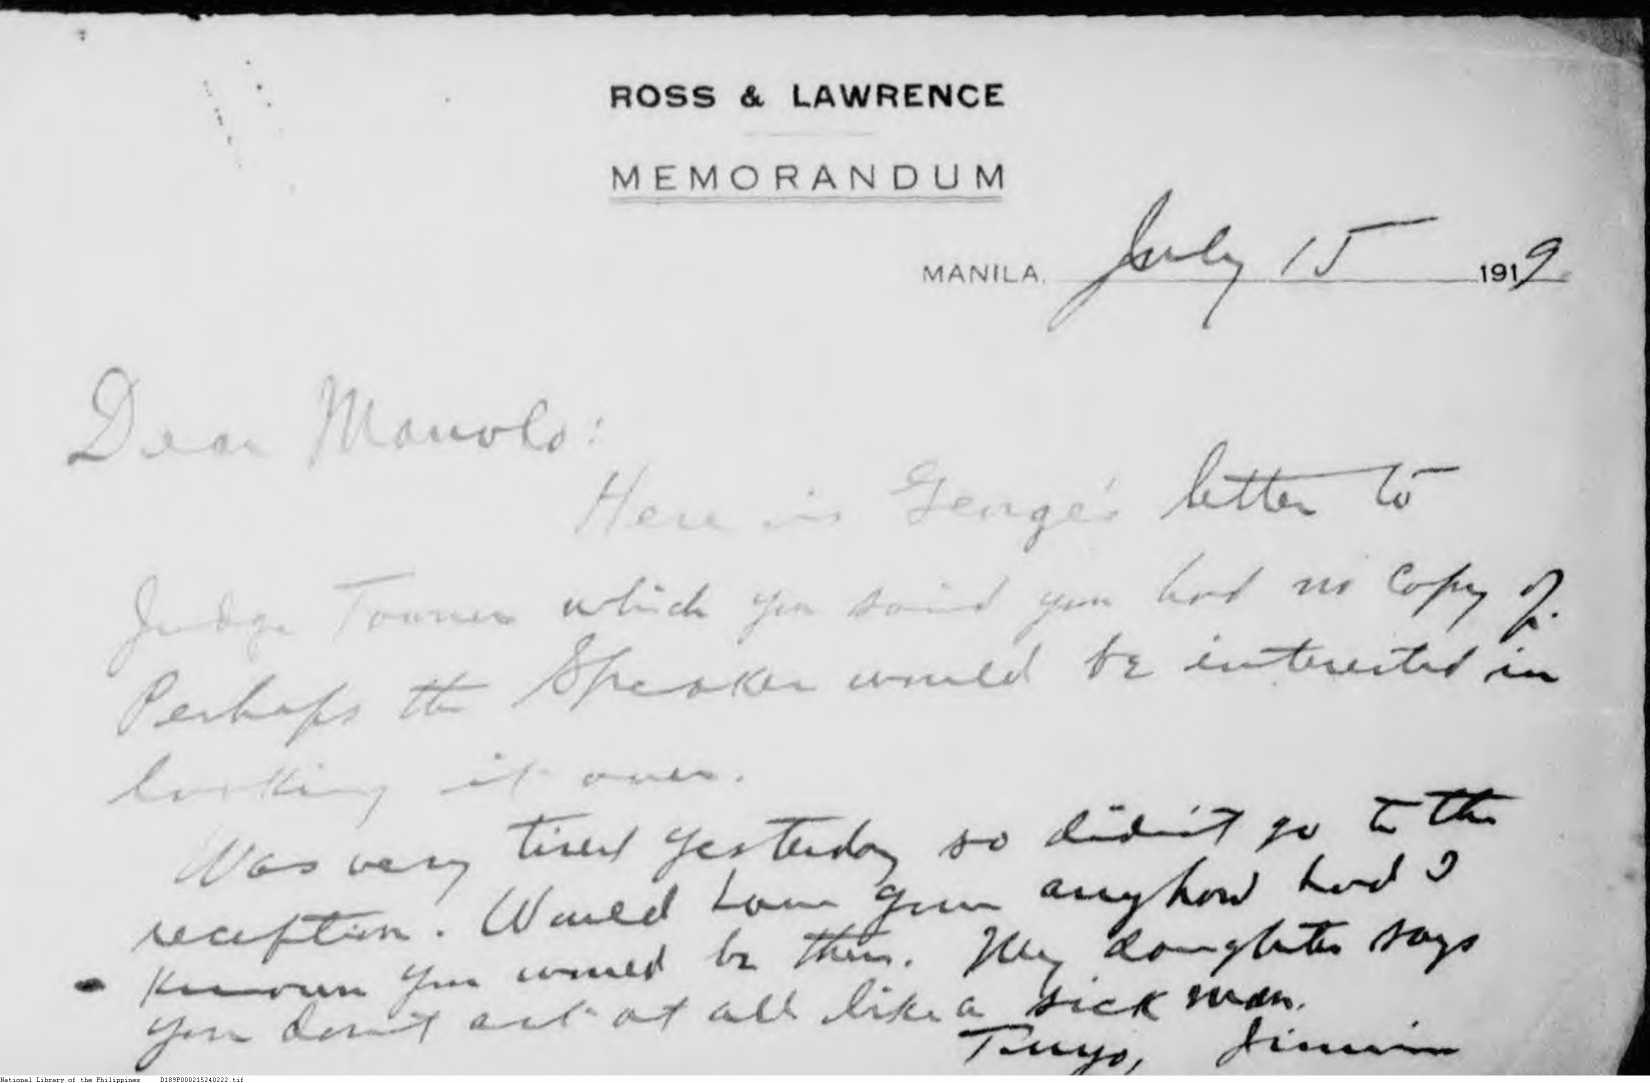 ROSS & LAWRENCE
MEMORANDUM
MANILA, July 15 1919
Dear Manolo:
Here is George's letter to
Judge Towner which you said you had no copy of.
Perhaps the Speaker would be interested in
looking it over.
Was very tired yesterday so didn't go to the
reception. Would have gone anyhow had I
known you would be there. My daughter says
you don't act at all like a sick man.
Tuyo, Jimmie
National Library of the Philippines D189P000215240222.tif